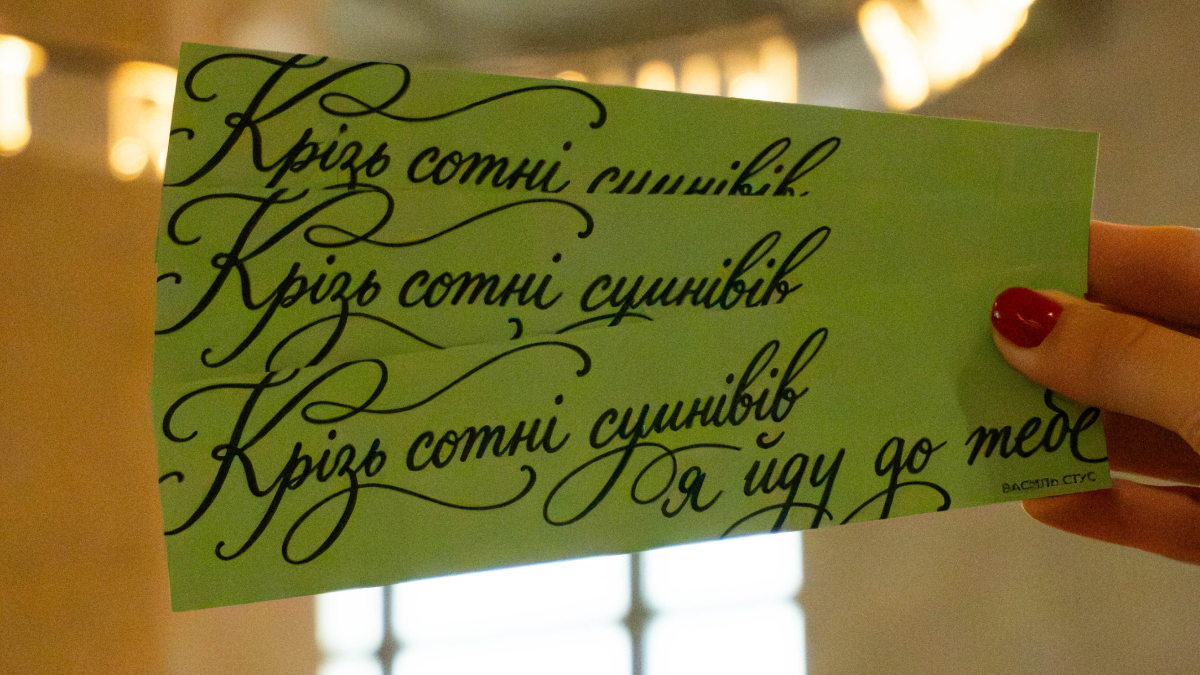 Крізь сотні сумнівів
Крізь сотні сумнівів
Крізь сотні сумнівів
я йду до тебе
ВАСИЛЬ СТУС